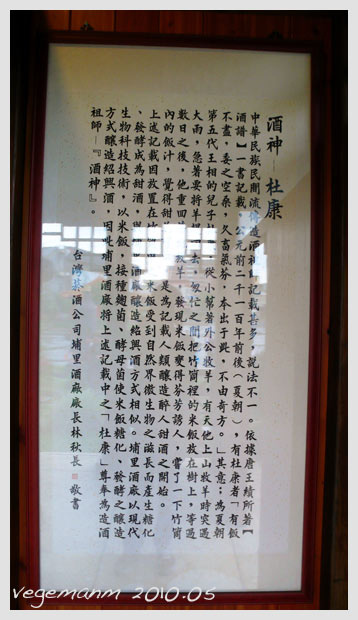 酒神—杜康
中華民族民間流傳造酒祖師記載甚多,說法不一。依據唐王績所著【
酒譜】一書記載「公元前二千一百年前後(夏朝),有杜康者「有飯
不盡,委之空桑,久蓄氣芬,本出于此,不由奇方。」其意:為夏朝
第五代王相的兒子 從小 著外公牧羊,有天他上山牧羊時突遇
大雨,急著要將羊 去,匆忙之間把竹筒裡的米飯放在樹上,等過
數日之後,他重回 牧羊,發現米飯變得芬芳誘人,嘗了一下竹筒
內的飯汁,覺得甜 是為記載人類釀造醉人甜酒之開始。
上述記載因放置在 米飯受到自然界微生物之滋長而產生糖化
、發酵成為甜酒, 酒廠釀造紹興酒方式相似。埔里酒廠以現代
生物科技技術,以米飯,接種麴菌、酵母菌使米飯糖化、發酵之釀造
方式釀造紹興酒,因此埔里酒廠將上述記載中之「杜康」尊奉為造酒
祖師—『酒神』。
台灣菸酒公司埔里酒廠廠長林秋長 敬書
vegemanm 2010.05